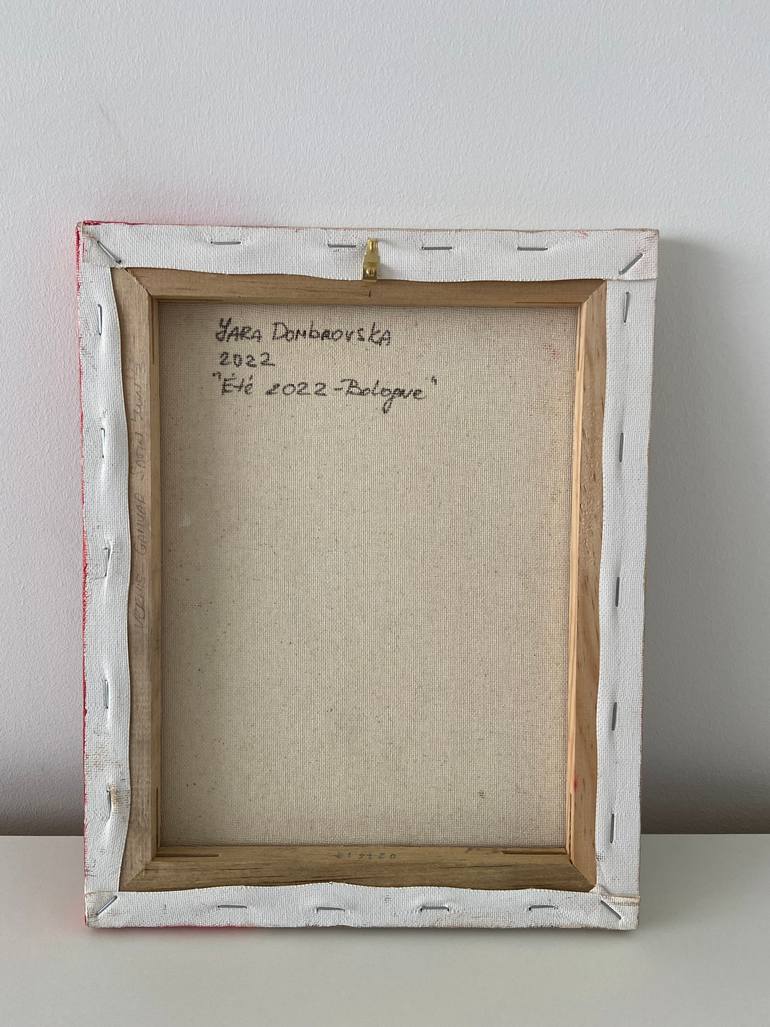 YARA DOMBROVSKA
2022
"Été 2022-Bologne"